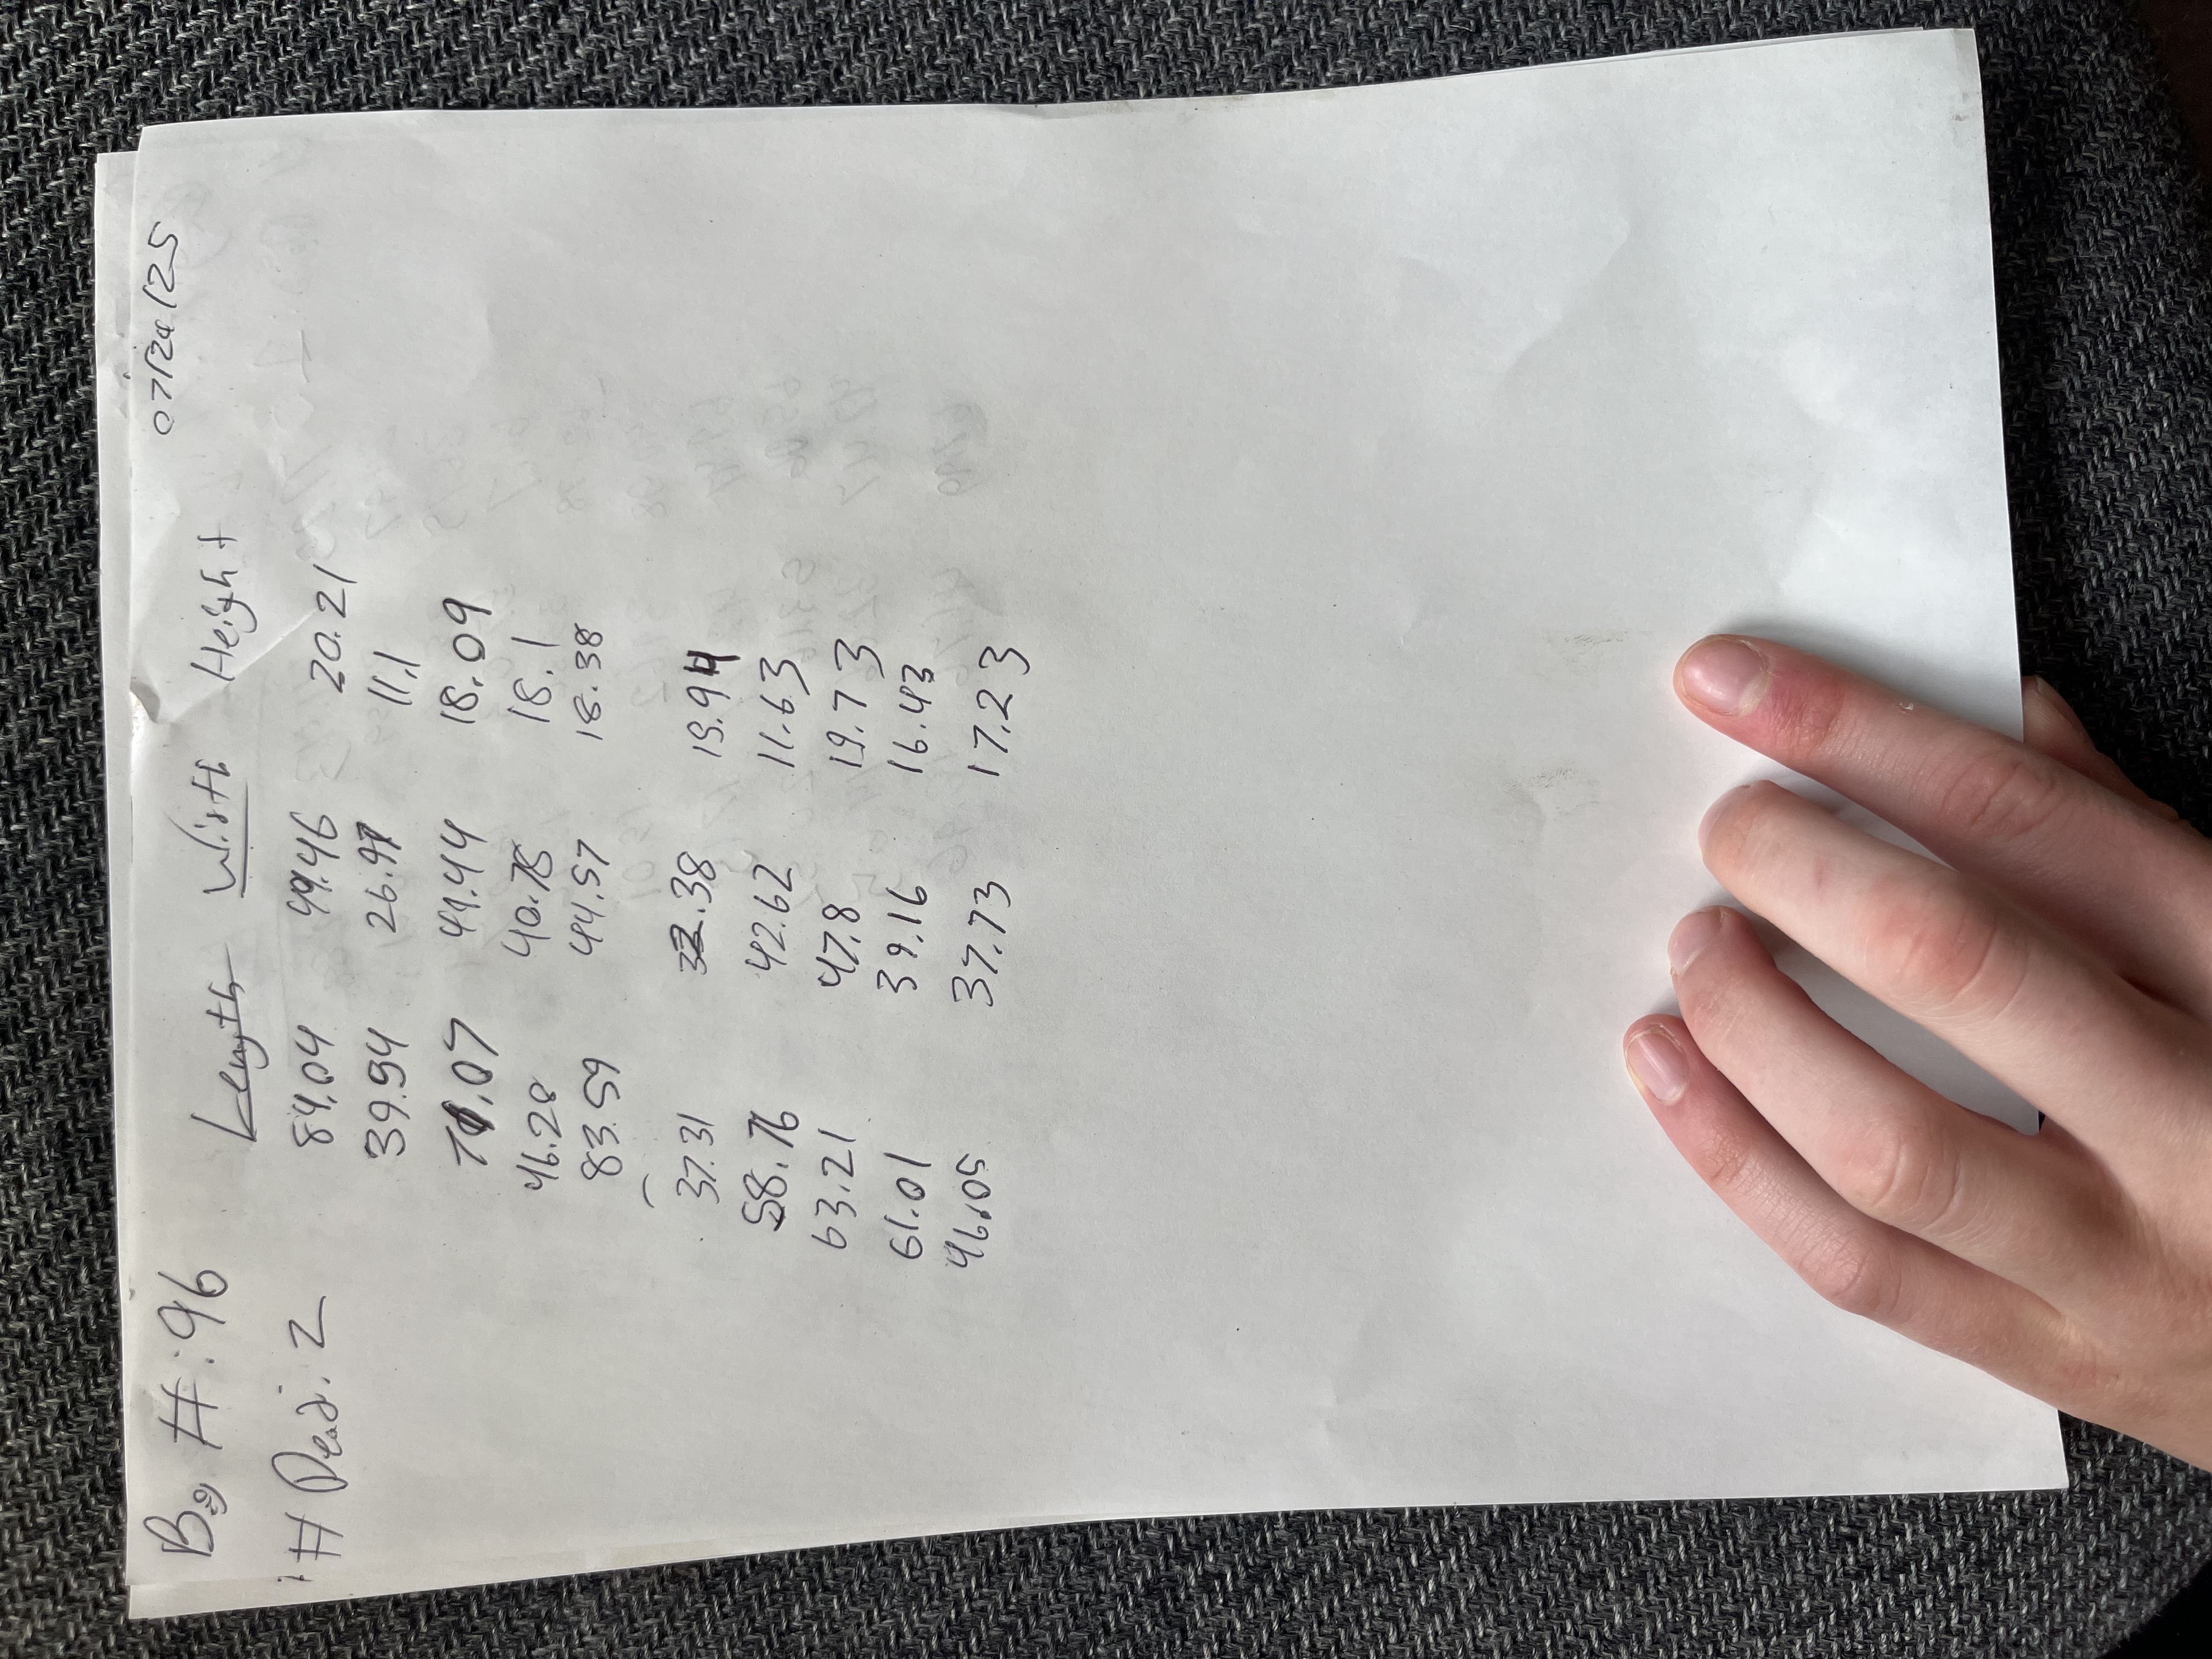 Bag #: 96 07/24/25
Length Width Height
# Dead: 2
84.04 49.46 20.21
39.94 26.97 11.1
71.07 41.44 18.09
46.28 40.78 18.1
83.59 44.57 18.38
37.31 32.38 19.94
58.76 42.62 11.63
63.21 47.8 19.73
61.01 39.16 16.43
46.05 37.73 17.23